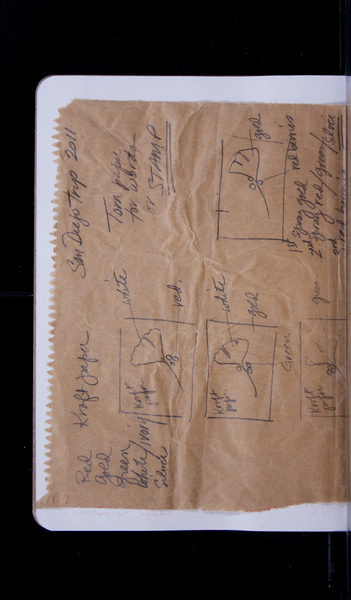 San Diego Trip 2011
Kraft paper
Red
Gold
Green
White/Ivory
Silver
Torn paper
for words
or STAMP
Kraft
paper
white
red.
Kraft
paper
white
gold
gold
red berries
1st spray gold
2nd spray red/green/
silver
Green
Kraft
paper
green